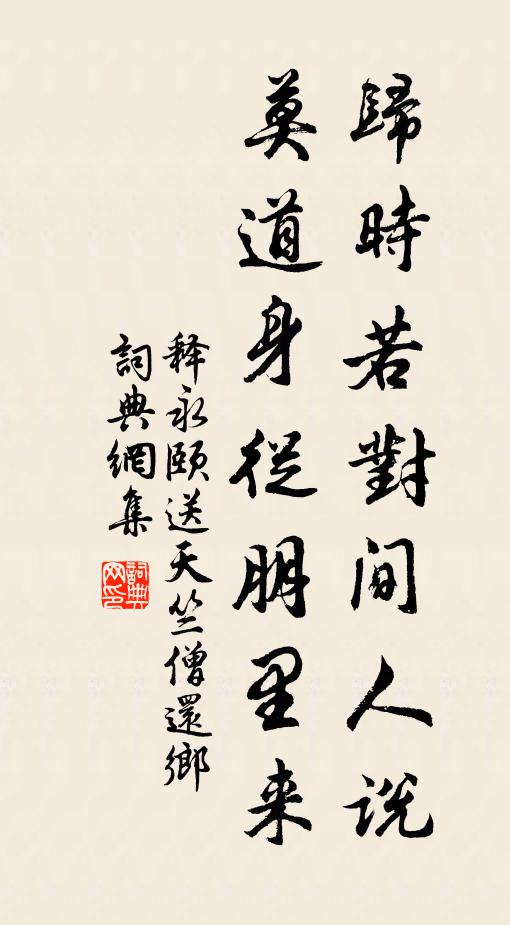 歸時若對間人説
莫道身從朋里来
释永頤送天竺僧還鄉
詞典網集
詞典网印